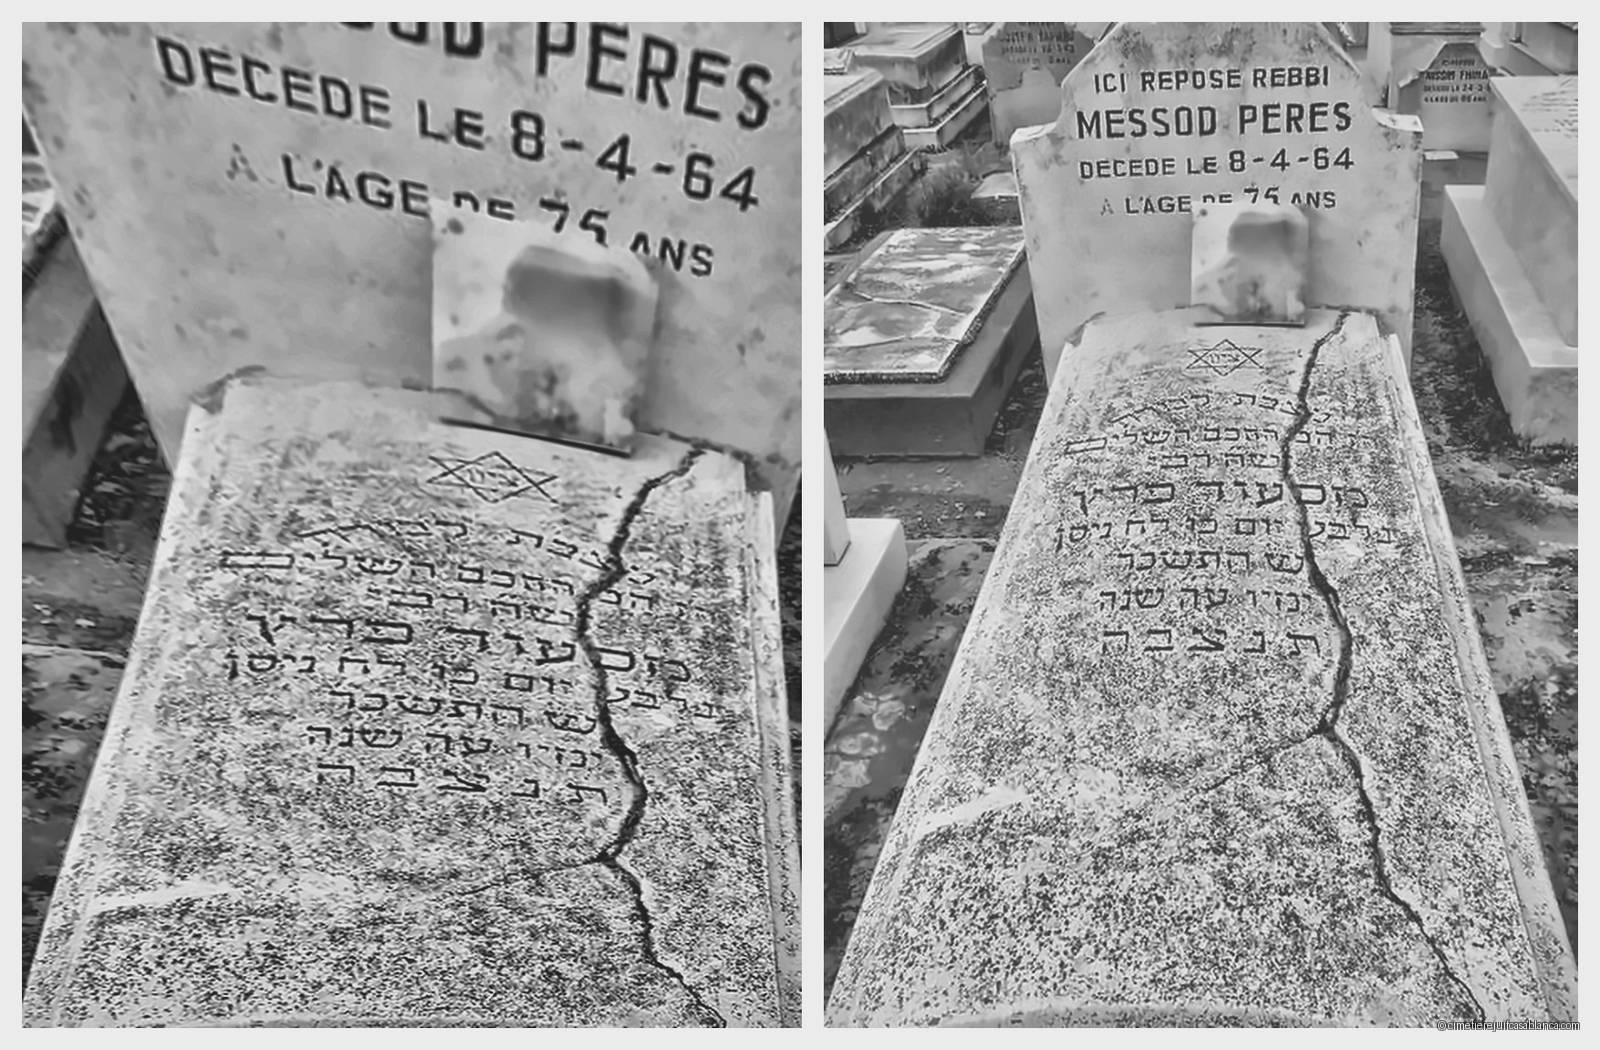 SOD PERES
DECEDE LE 8-4-64
A L'AGE DE 75 ANS
מצבת
החכם השלים
רבי
מסעוד פריץ
נלבע יום כו לח ניסן
ש התשכד
ימיו עה שנה
ת נ צ ב ה
ICI REPOSE REBBI
MESSOD PERES
DECEDE LE 8-4-64
A L'AGE DE 75 ANS
מצבת
החכם השלים
רבי
מסעוד פריץ
נלבע יום כו לח ניסן
ש התשכד
ימיו עה שנה
ת נ צ ב ה
NISSIM FHIMA
©cimetierejuifcasablanca.com